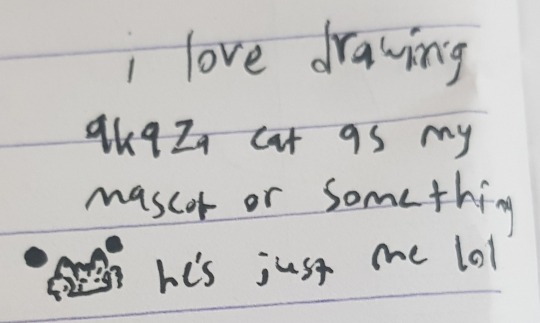 i love drawing
akaza cat as my
mascot or something
he's just me lol